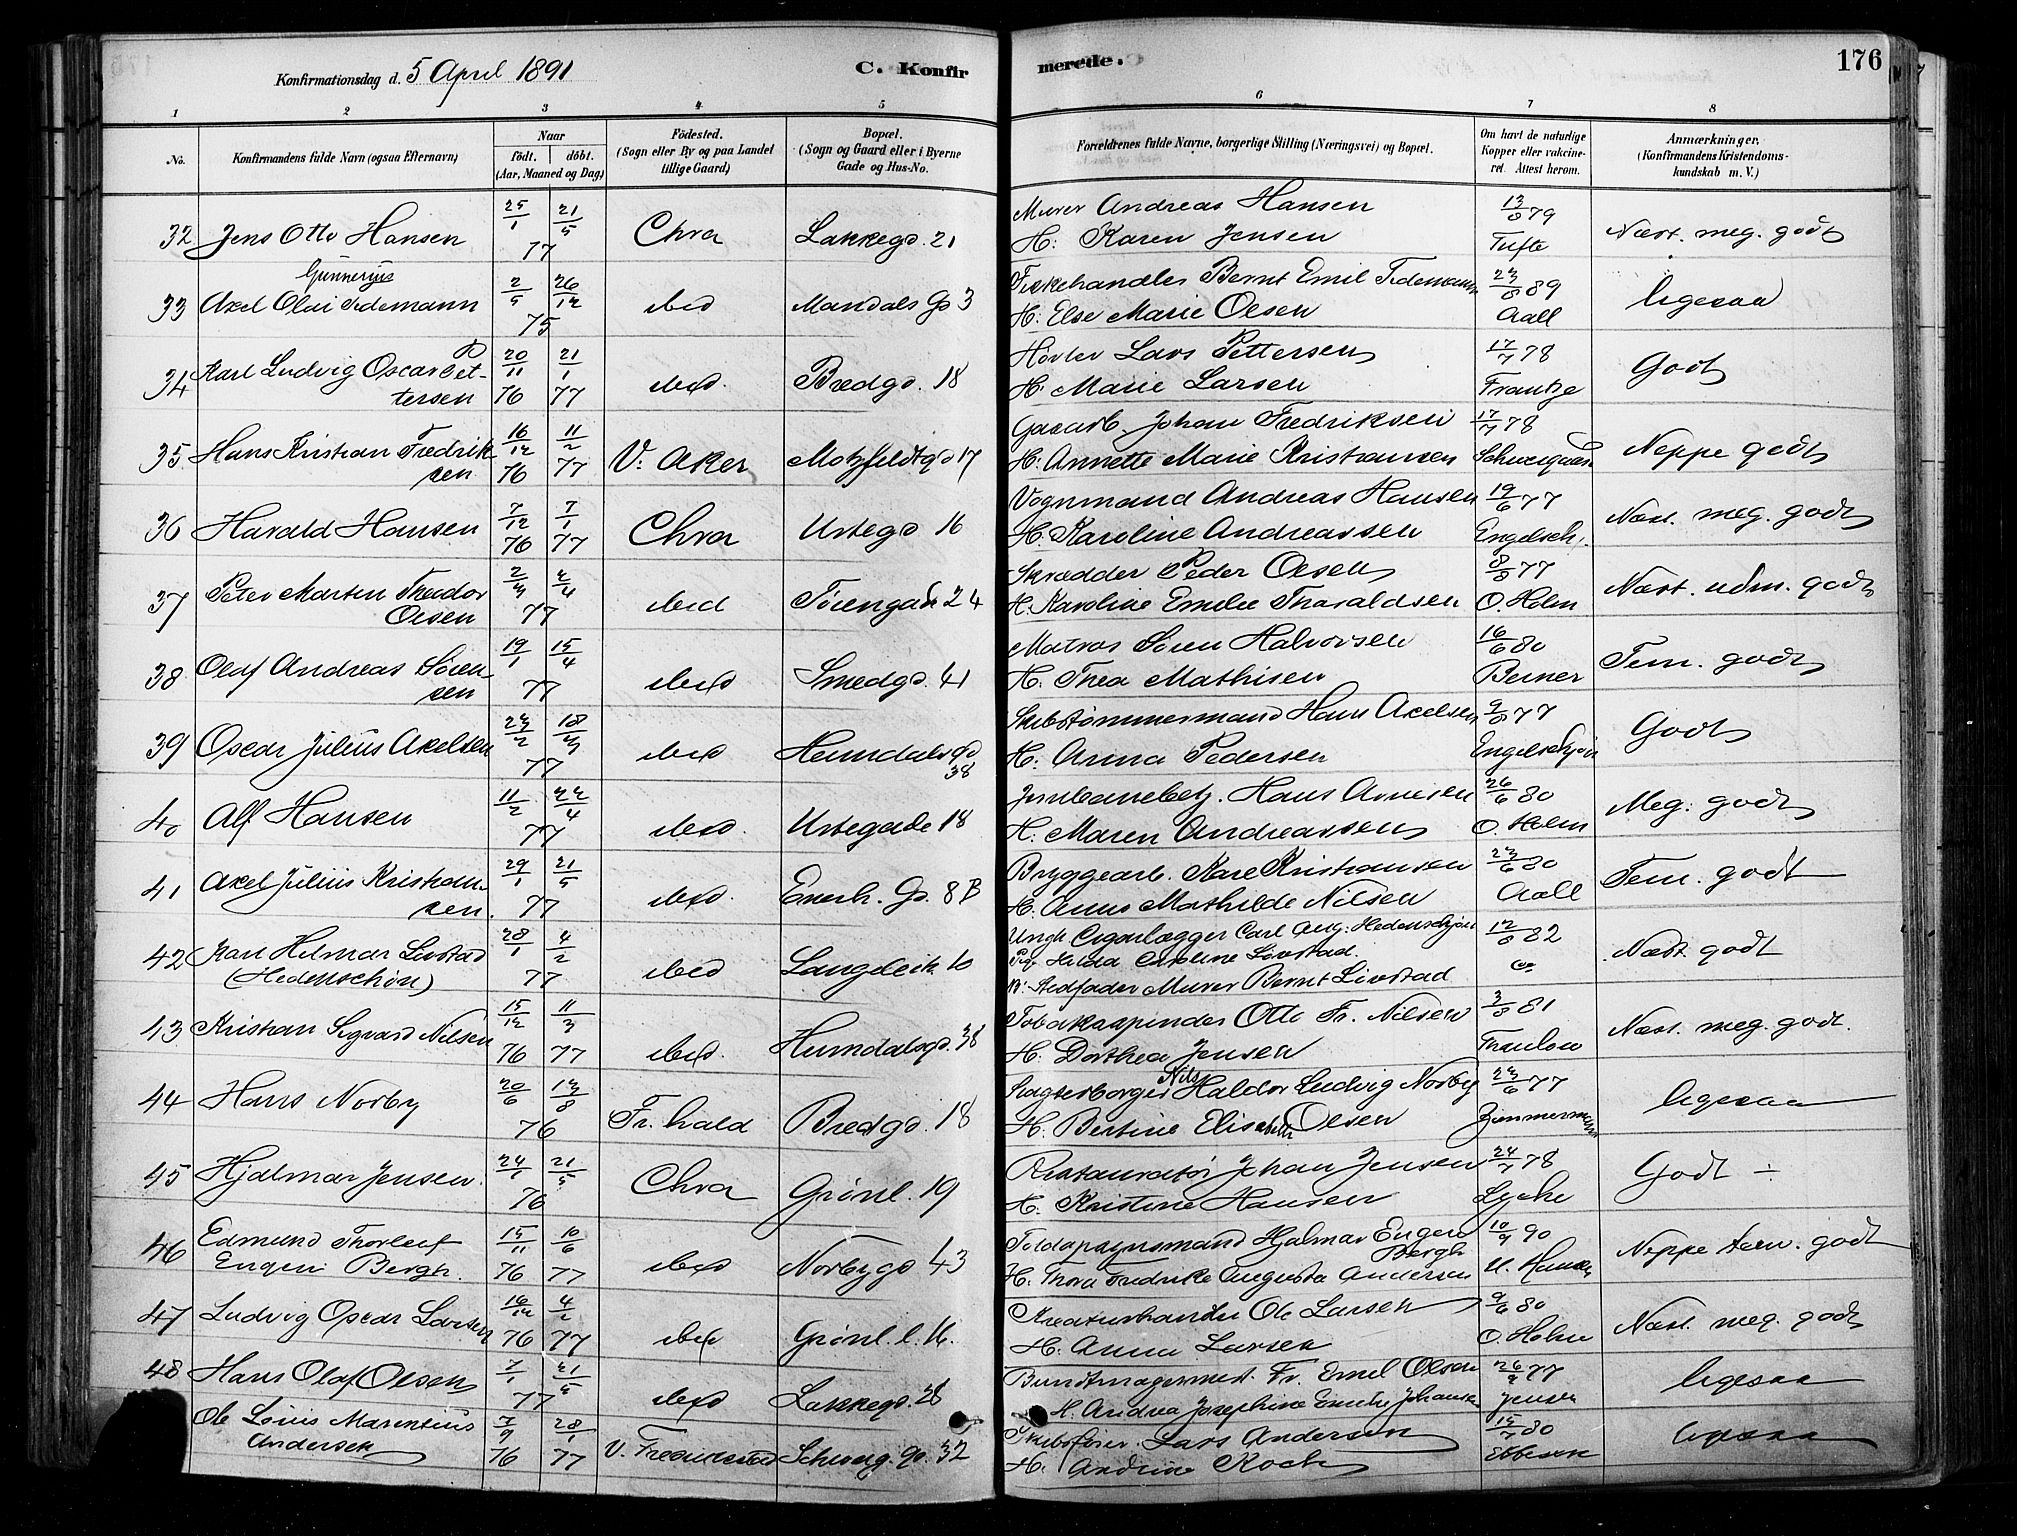 Konfirmationsdag d. 5 April 1891
C. Konfirmerede.
176
1 2 3 4 5 6 7 8
No.
Konfirmandens fulde Navn (ogsaa Efternavn)
Naar
født. døbt.
(Aar, Maaned og Dag)
Fødested.
(Sogn eller By og paa Landet
tillige Gaard)
Bopæl.
(Sogn og Gaard eller i Byerne
Gade og Hus-No.
Forældrenes fulde Navne, borgerlige Stilling (Næringsvei) og Bopæl.
Om havt de naturlige
Kopper eller vakcine-
ret. Attest herom.
Anmærkninger.
(Konfirmandens Kristendoms-
kundskab m. V.)
32 Jens Otto Hansen 25/1 21/5 77 Chra Lakkegd. 21 Murer Andreas Hansen 13/8 79 Næst. meg. godt
H: Karen Jensen Tufte
Gunnerius
33 Axel Olai Tidemann 2/5 26/12 75 ibid Mandals Gd 3 Fiskehandler Bernt Emil Tidemann 23/8 89 ligesaa
H: Else Marie Olsen Aall
34 Karl Ludvig Oscar Pet- 20/11 21/1 ibid. Bredgd. 18 Høvler Lars Pettersen 17/7 78 Godt
tersen 76 77 H: Marie Larsen Frantze
35 Hans Kristian Fredrik 16/12 11/2 V. Aker Motzfeldtgd 17 Gasarb. Johan Fredriksen 17/7 78 Neppe godt
sen 76 77 H. Annette Marie Kristiansen
36 Harald Hansen 7/12 7/1 76 77 Chra Urtegd 16 Vognmand Andreas Hansen 19/6 77 Næst. meg. godt
H. Karoline Andreassen Engelsch.
37 Peter Marten Theodor 2/3 2/4 ibid Tøiengade 24 Skrædder Peder Olsen 8/8 77 Næst. udm. godt
Olsen 77 H. Karoline Emilie Tharaldsen O. Holm
38 Olaf Andreas Søren- 19/1 15/4 ibid Smedgd. 41 Matros Søren Halvorsen 16/6 80 Tem. godt
sen 77 H. Thea Mathisen Berner
39 Oscar Julius Axelsen 23/2 18/3 77 ibid Heimdals Gd 38 Skibstømmermand Hans Axelsen 9/8 77 Godt
H. Anna Pedersen Engelschjøn
40 Alf Hansen 11/2 22/4 77 ibid. Urtegade 18 Jernbanebetj. Hans Arnesen 26/6 80 Meg. godt
H. Maren Andreassen O. Holm
41 Axel Julius Kristian- 29/1 21/5 ibid. Enerh. Gd. 8 B Bryggearb. Kare Kristiansen 23/6 80 Tem. godt
sen. 77 H. Anna Mathilde Nilsen Aall
42 Karl Hilmar Livstad 28/1 4/2 ibid Langleik 10 Ungk Cigarlægger Carl Aug. Hedenschjøn 12/8 82 Næst. godt
(Hedenschøn) 77 Pig. Hilda Caroline Livstad.
Stedfader Murer Bernt Livstad
43 Kristian Sigvard Nilsen 15/12 11/3 76 77 ibid. Heimdalsgd. 38 Tobakspinder Otto Fr. Nilsen 3/8 81 Næst. meg. godt.
H. Dorthea Jensen Thaulow
44 Hans Norby 20/6 13/8 76 Fr. hald Bredgd. 18 Slagterborger Nils Haldor Ludvig Norby 23/6 77 ligesaa
H. Bertine Elisabeth Olsen Zimmermann
45 Hjalmar Jensen. 24/1 21/5 76 Chra Grønl. 19 Restauratør Johan Jensen 24/7 78 Godt ÷
H. Kristine Hansen Lyche
46 Edmund Thorleif 15/11 10/6 ibid Norbygd 43 Toldopsynsmand Hjalmar Eugen 10/9 90 Neppe tem. godt
Eugen Bergh. 76 77 Bergh
H. Thora Fredrike Augusta Andersen
47 Ludvig Oscar Larsen 16/12 4/2 76 77 ibid Grønl. l. 16. Kreaturhandler Ole Larsen 9/6 80 Næst. meg. godt
H. Anna Larsen O. Holm
48 Hans Olaf Olsen 7/1 21/5 77 ibid Lakkegd. 28 Bundtmagermest. Fr. Emil Olsen 26/2 77 ligesaa
H. Andrea Josephine Emilie Johansen Jensen
Ole Louis Marentius 7/9 28/1 V. Fredrikstad Schweig. gd. 32 Skibsfører Lars Andersen 15/7 80 ligesaa
Andersen 76 77 H. Andrine Koch Ebbesen